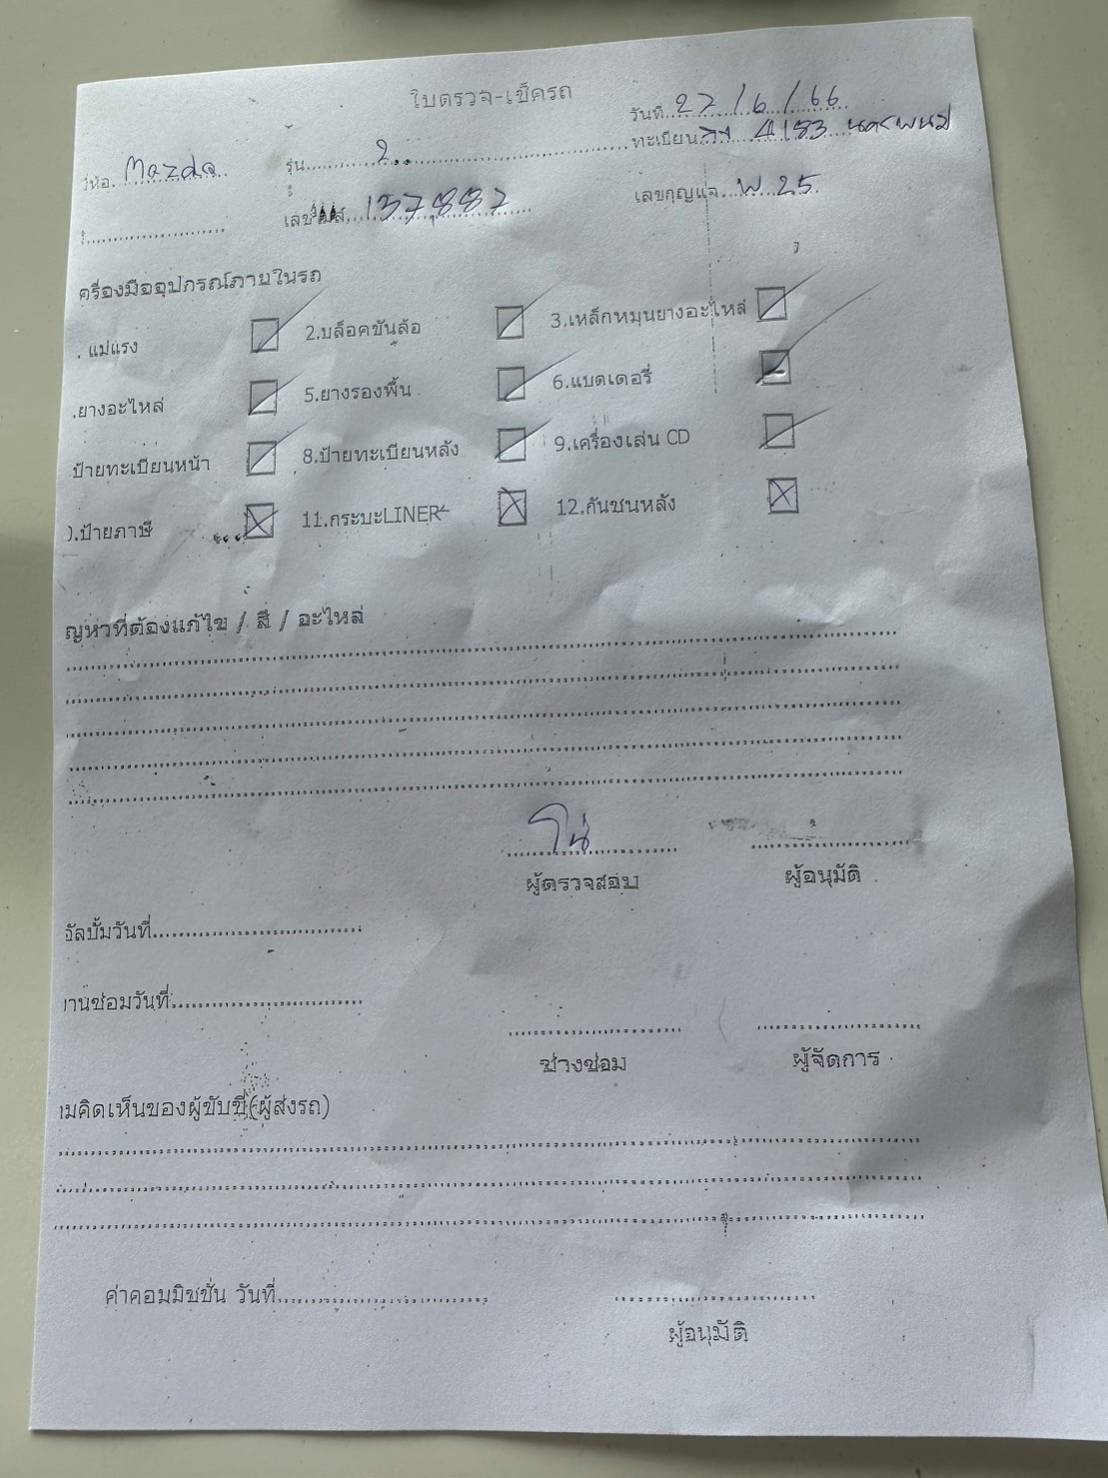 ใบตรวจ-เช็ครถ
วันที่ 27/6/66
ทะเบียน 4183 นครพนม
ยี่ห้อ Mazda รุ่น 2
เลขไมล์ 137887 เลขกุญแจ W 25
ครื่องมืออุปกรณ์ภายในรถ
. แม่แรง 2.บล็อคขันล้อ 3.เหล็กหมุนยางอะไหล่
.ยางอะไหล่ 5.ยางรองพื้น 6.แบตเตอรี่
ป้ายทะเบียนหน้า 8.ป้ายทะเบียนหลัง 9.เครื่องเล่น CD
).ป้ายภาษี 11.กระบะLINER 12.กันชนหลัง
ญหาที่ต้องแก้ไข / สี / อะไหล่
โน่
ผู้ตรวจสอบ ผู้อนุมัติ
อัลบั้มวันที่
านซ่อมวันที่
ช่างซ่อม ผู้จัดการ
ามคิดเห็นของผู้ขับขี่(ผู้ส่งรถ)
ค่าคอมมิชชั่น วันที่
ผู้อนุมัติ